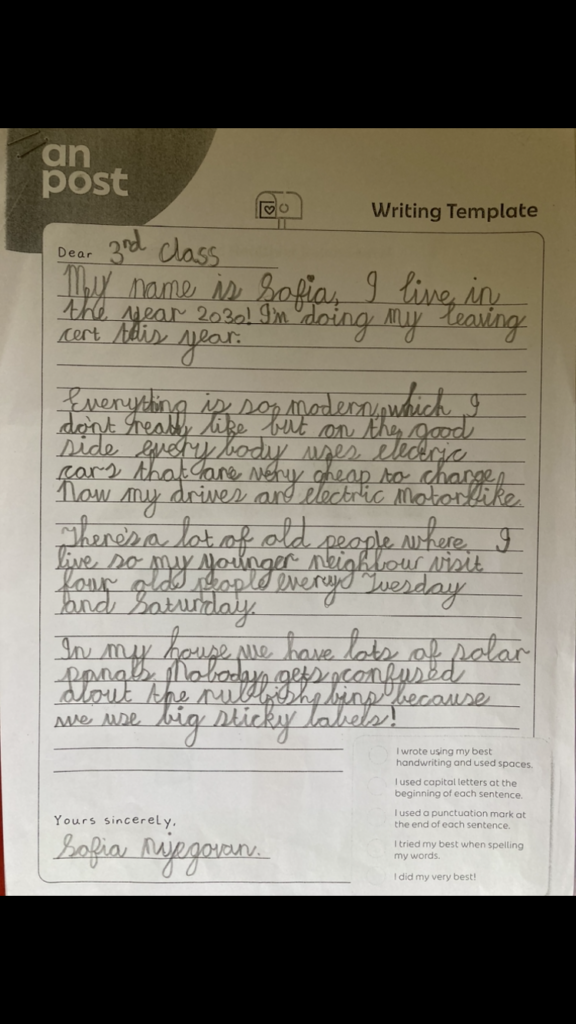 an
post
Writing Template
Dear 3rd Class
My name is Sofia, I live in
the year 2030! I'm doing my leaving
cert this year.
Everything is so modern, which I
dont really like but on the good
side every body uses electric
cars that are very cheap to charge
Now my drives an electric motorbike.
There's a lot of old people where I
live so my younger neighbour visit
four old people every Tuesday
and Saturday.
In my house we have lots of solar
panals. Nobody gets confused
about the rubbish bins because
we use big sticky labels!
I wrote using my best
handwriting and used spaces.
I used capital letters at the
beginning of each sentence.
I used a punctuation mark at
the end of each sentence.
I tried my best when spelling
my words.
I did my very best!
Yours sincerely,
Sofia Njegovan.